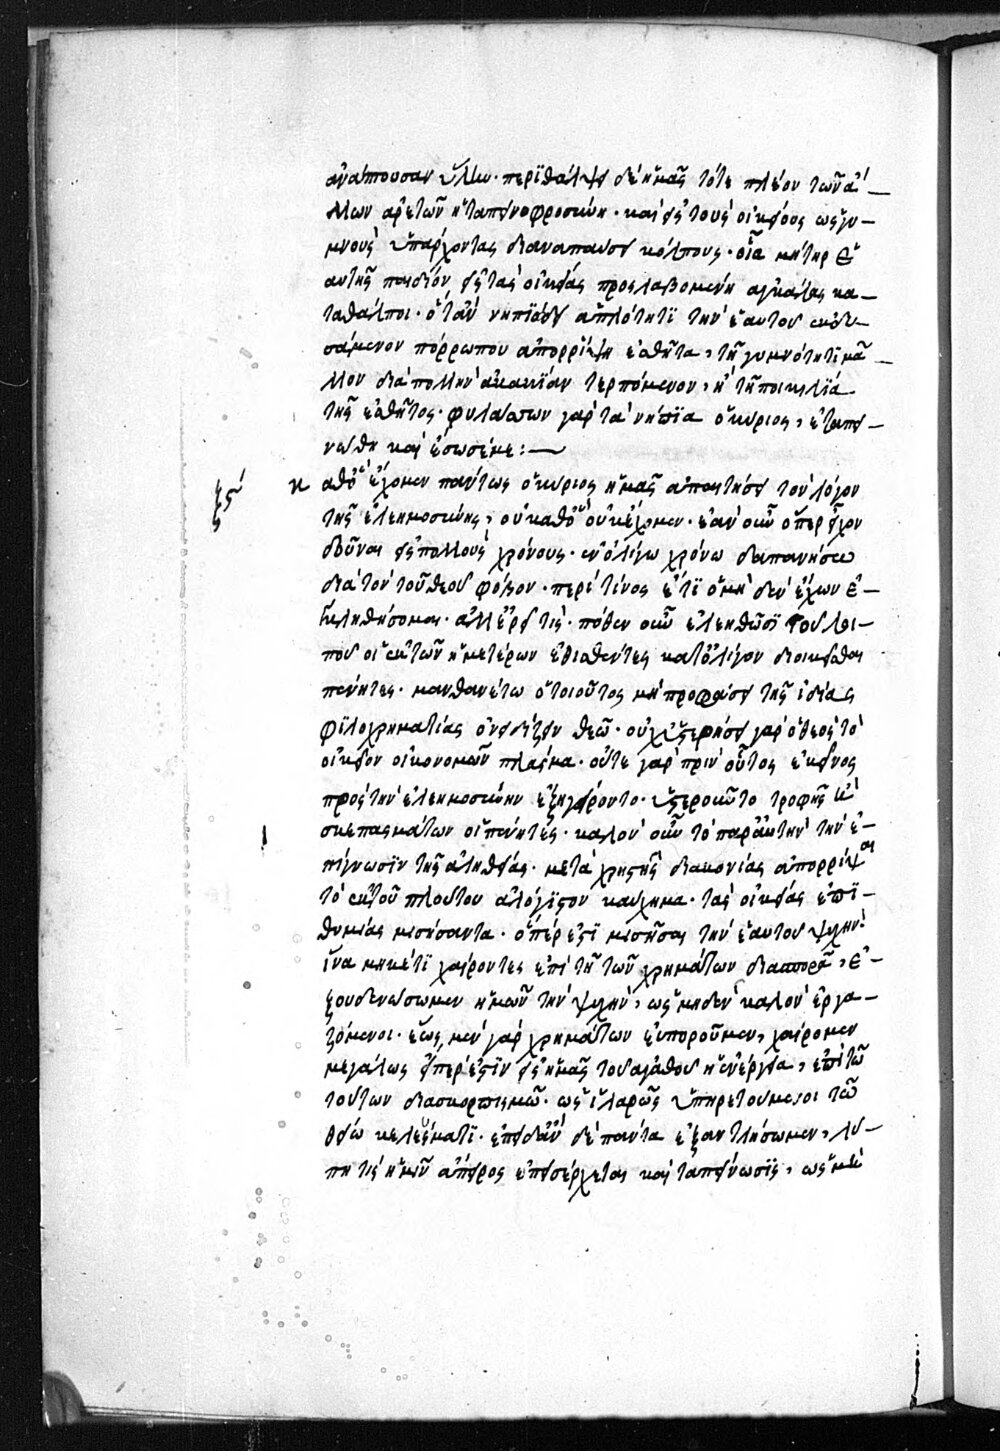 ἀνάπτουσαν ὕλην· περιθάλψει δὲ ἡμᾶς τότε πλέον τῶν ἄλ-
λων ἀρετῶν ἡ ταπεινοφροσύνη· καὶ εἰς τοὺς οἰκείους ὡς γυ-
μνοὺς ὑπάρχοντας διαναπαύσει κόλπους· οἷα μήτηρ ἑ-
αυτῆς παιδίον εἰς τὰς οἰκείας προσλαβομένη ἀγκάλας κα-
ταθάλποι· ὅταν νηπιώδει ἁπλότητι τὴν ἑαυτοῦ ἐκδυ-
σάμενον πόρρω που ἀπορρίψη ἐσθῆτα, τῆ γυμνότητι μᾶ-
λλον διὰ πολλὴν ἀκακίαν τερπόμενον, ἢ τῆ ποικιλία
τῆς ἐσθῆτος· φυλάσσων γὰρ τὰ νήπια ὁ κύριος, ἐταπει-
νώθη καὶ ἔσωσέ με:—
Καθὸ ἔχομεν πάντως ὁ κύριος ἡμᾶς ἀπαιτήσει τὸν λόγον
τῆς ἐλεημοσύνης, οὐ καθὸ οὐκ ἔχομεν· ἐὰν οὖν ὅπερ εἶχον
δοῦναι εἰς πολλοὺς χρόνους· ἐν ὀλίγω χρόνω διαπανήσω
διὰ τὸν τοῦ θεοῦ φόβον· περὶ τίνος ἔτι ὁ μηδὲν ἔχων ἐγ-
κληθήσομαι· ἀλλ' ἐρεῖ τίς· πόθεν οὖν ἐλεηθῶσι τοῦ λοι-
ποῦ οἱ ἐκ τῶν ἡμετέρων ἐθισθέντες κατ' ὀλίγον διοικεῖσθαι
πένητες· μανθανέτω ὁ τοιοῦτος μὴ προφάσει τῆς ἰδίας
φιλοχρηματίας ὀνειδίζειν θεῶ· οὐχ ὑστερήσει γὰρ ὁ θεὸς τὸ
οἰκεῖον οἰκονομῶν πλάσμα· οὔτε γὰρ πρὶν οὗτος ἐκεῖνος
πρὸς τὴν ἐλεημοσύνην ἐξηγείροντο· ὑστεροῦντο τροφῆς ἢ
σκεπασμάτων οἱ πένητες· καλὸν οὖν τὸ παρὰ αὐτὴν τὴν ἐ-
πίγνωσιν τῆς ἀληθείας· μετὰ χρηστῆς διακονίας ἀπορρίψαι
τὸ ἐκ τοῦ πλούτου ἀλόγιστον καύχημα· τὰς οἰκείας ἐπι-
θυμίας μισήσαντα· ὅπερ ἐστὶ μισῆσαι τὴν ἑαυτοῦ ψυχήν·
ἵνα μηκέτι χαίροντες ἐπὶ τῆ τῶν χρημάτων διασπορᾶ, ἐ-
ξουδενώσωμεν ἡμῶν τὴν ψυχήν, ὡς μηδὲν καλὸν ἐργα-
ζόμενοι· ἕως μὲν γὰρ χρημάτων εὐποροῦμεν, χαίρομεν
μεγάλως εἴπερ ἐστὶν εἰς ἡμᾶς τοῦ ἀγαθοῦ ἡ ἐνέργεια, ἐπὶ τῶ
τούτων διασκορπισμῶ· ὡς ἱλαρῶς ὑπηρετούμενοι τῶ
θείω κελεύσματι· ἐπειδὰν δὲ πάντα ἐξαντλήσωμεν, λύ-
πη τις ἡμῖν ἄπειρος ἐπεισέρχεται καὶ ταπείνωσις, ὡς μὲν